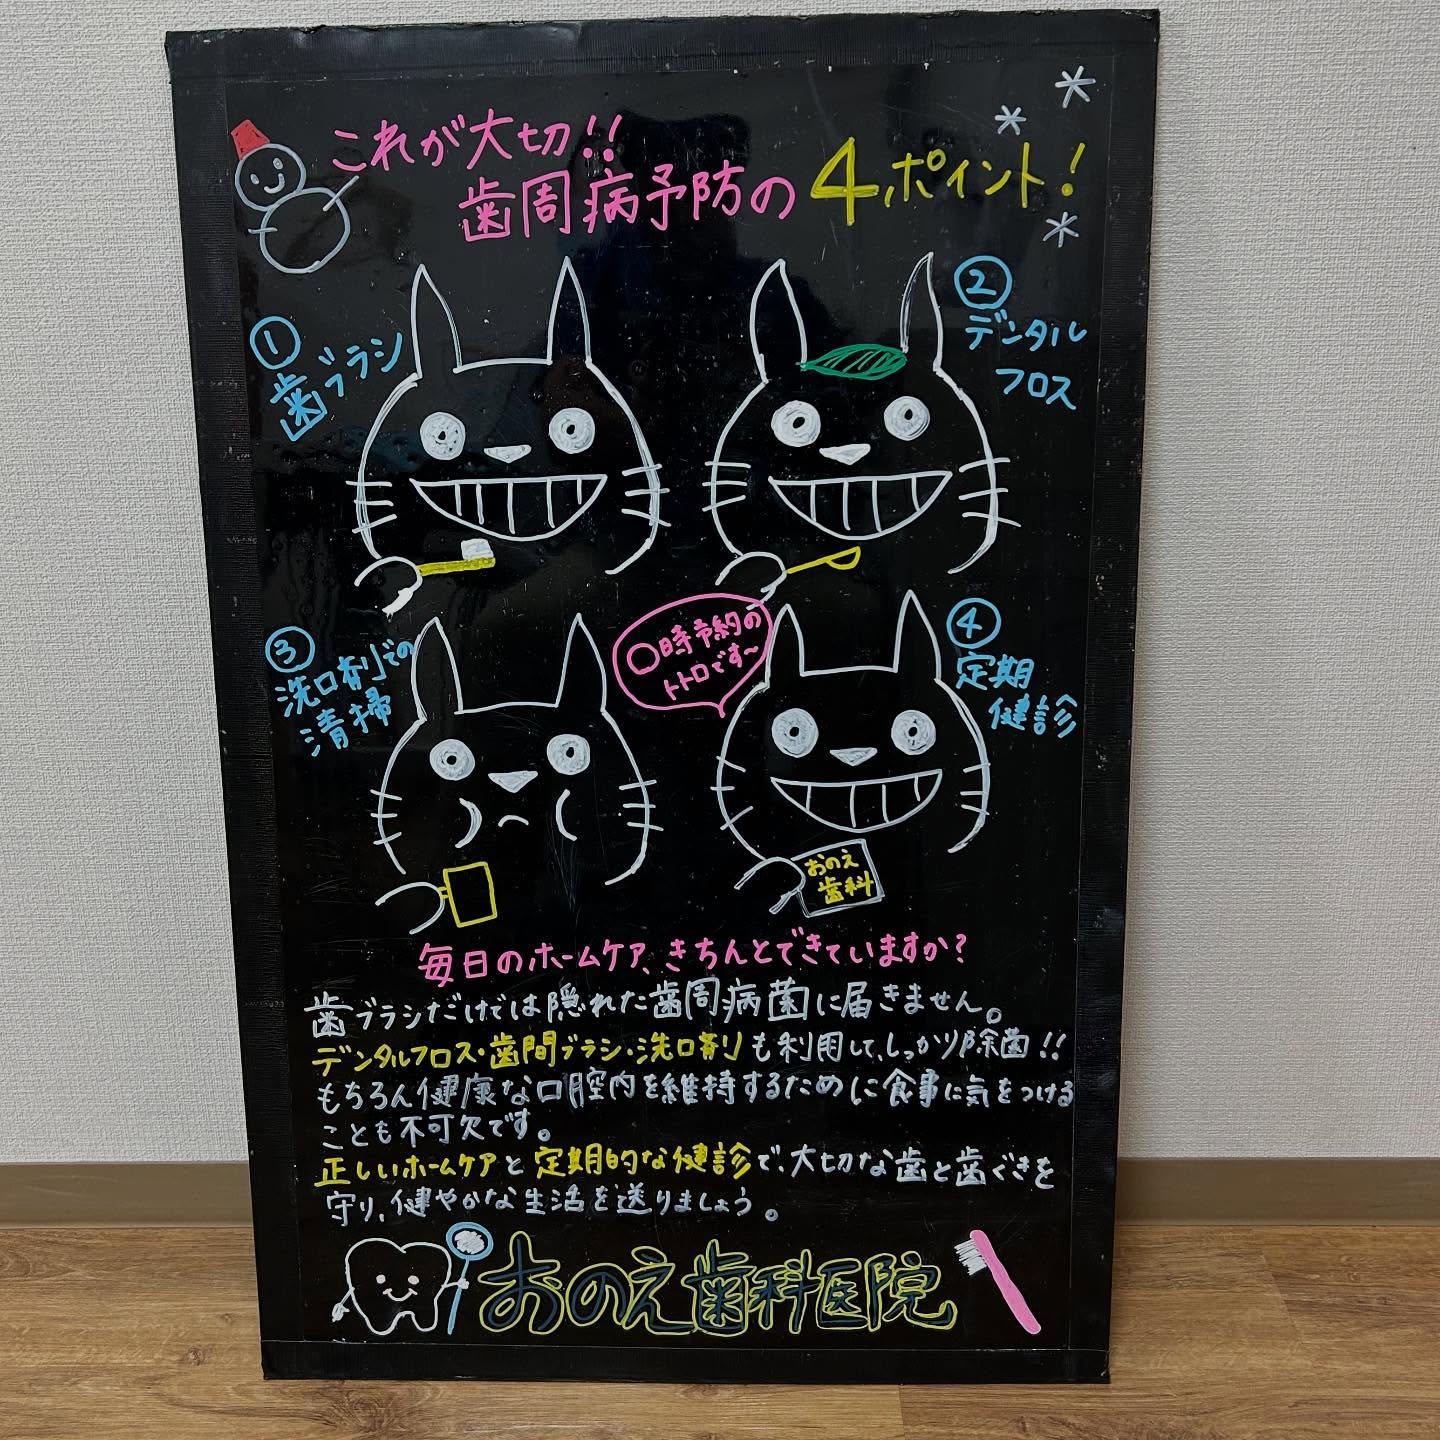 これが大切!!
歯周病予防の4ポイント!
①
歯ブラシ
②
デンタル
フロス
③
洗口剤での
清掃
〇時予約の
トトロです〜
④
定期
健診
おのえ
歯科
毎日のホームケア、きちんとできていますか?
歯ブラシだけでは隠れた歯周病菌に届きません。
デンタルフロス・歯間ブラシ・洗口剤も利用して、しっかり除菌!!
もちろん健康な口腔内を維持するために食事に気をつける
ことも不可欠です。
正しいホームケアと定期的な健診で、大切な歯と歯ぐきを
守り、健やかな生活を送りましょう。
おのえ歯科医院